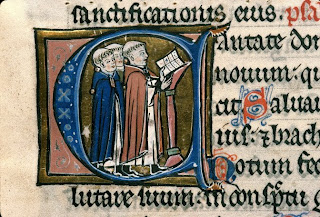 sanctificationis eius. psa
Cantate don
nouum: qu
cit Saluau
uis: ⁊ brach
Notum fec
lutare suum: in conspctu g